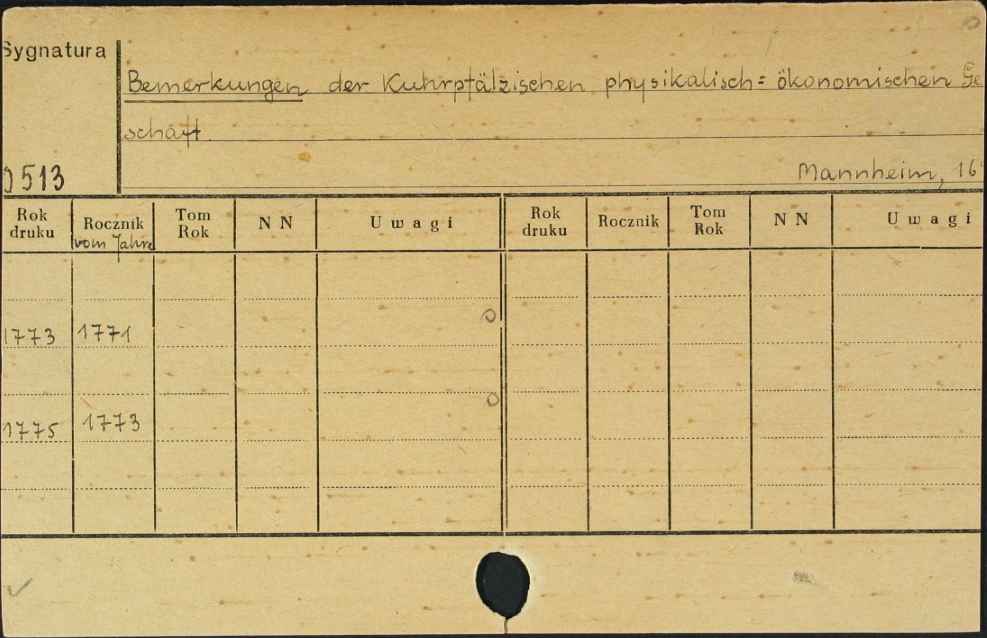 Sygnatura
Bemerkungen der Kuhrpfälzischen physikalisch= ökonomischen Ge
schaft.
513
Mannheim, 16
Rok druku Rocznik Tom Rok N N Uwagi Rok druku Rocznik Tom Rok N N Uwagi
vom Jahre
1773 1771
1775 1773